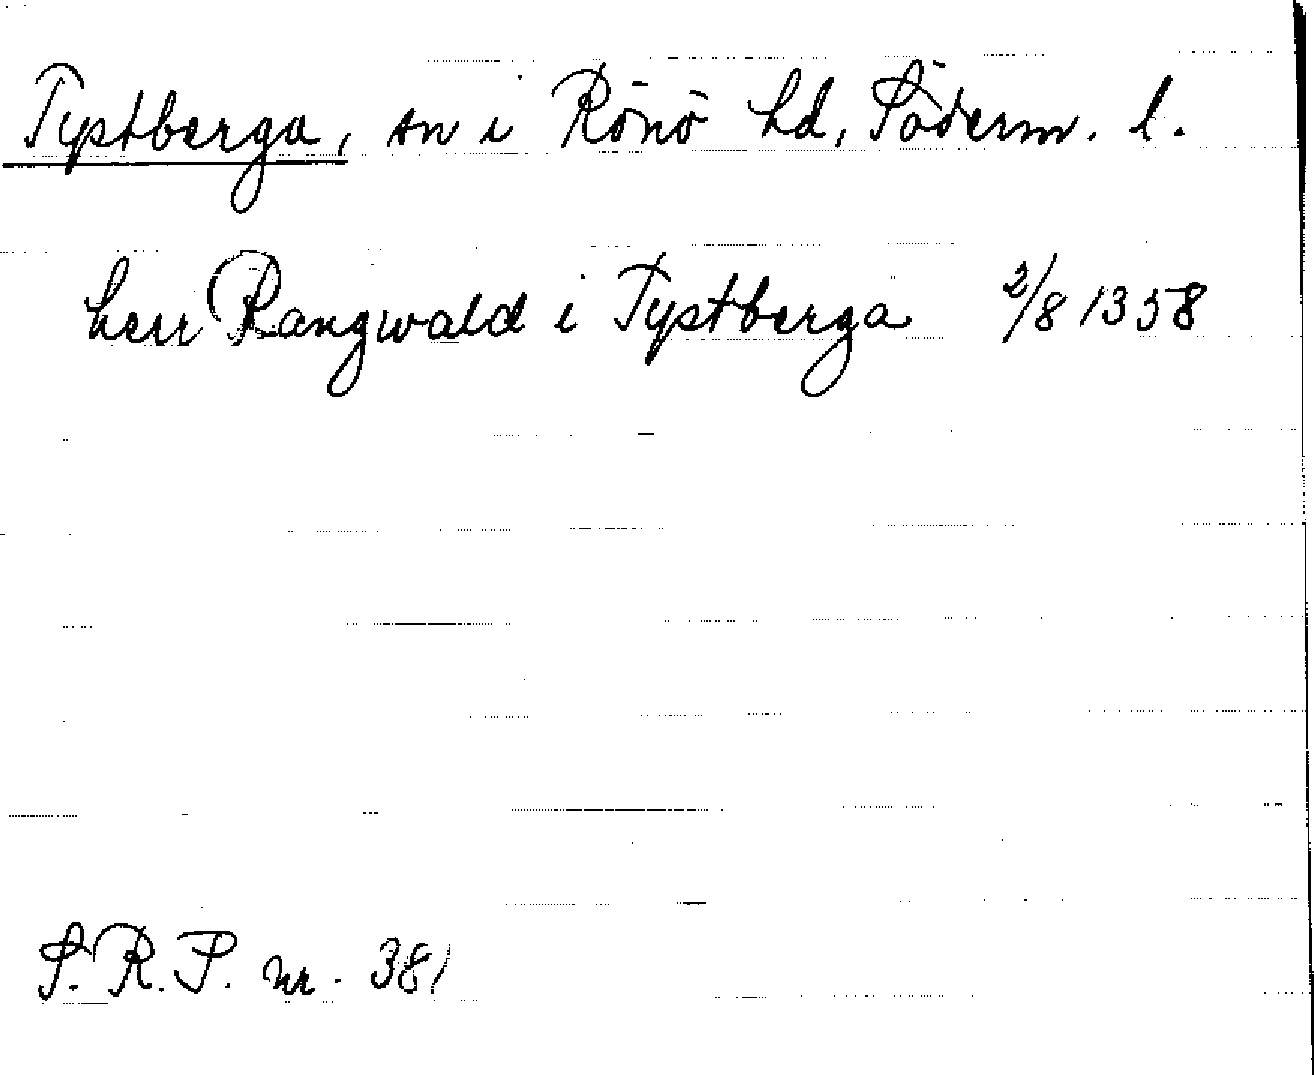 Tystberga, sn i Rönö hd, Söderm. l.
herr Rangwald i Tystberga 2/8 1358
S.R.P. nr. 381